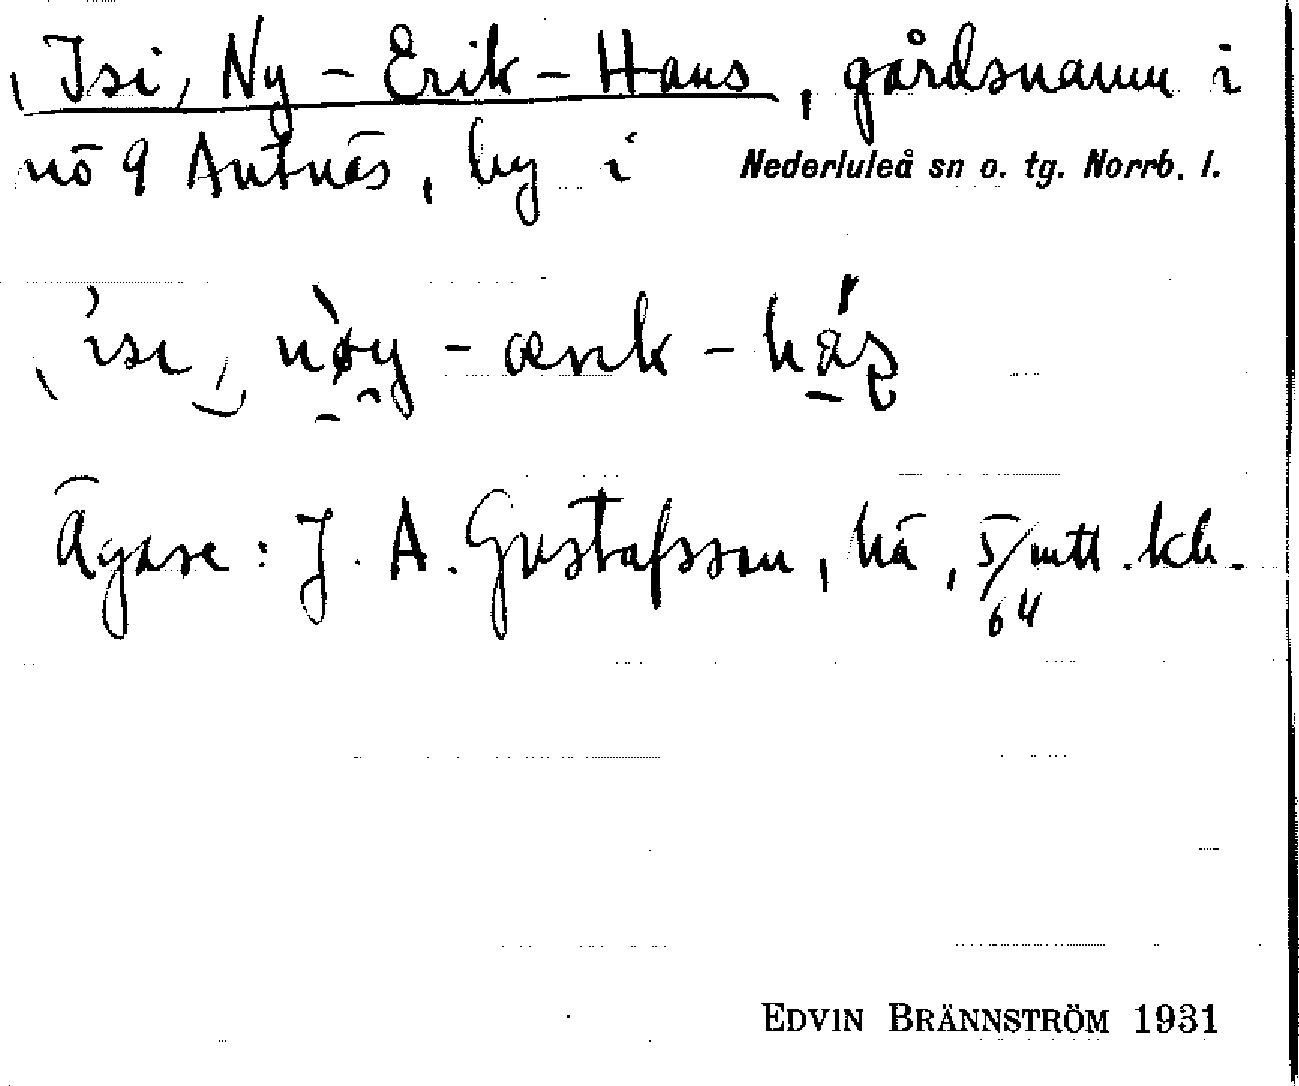 (Isi) Ny-Erik-Hans, gårdsnamn i
nö 9 Antnäs, by i Nederluleå sn o. tg. Norrb. l.
Ägare: J. A. Gustafsson, hä, 5/64 mtl. kh.
EDVIN BRÄNNSTRÖM 1931